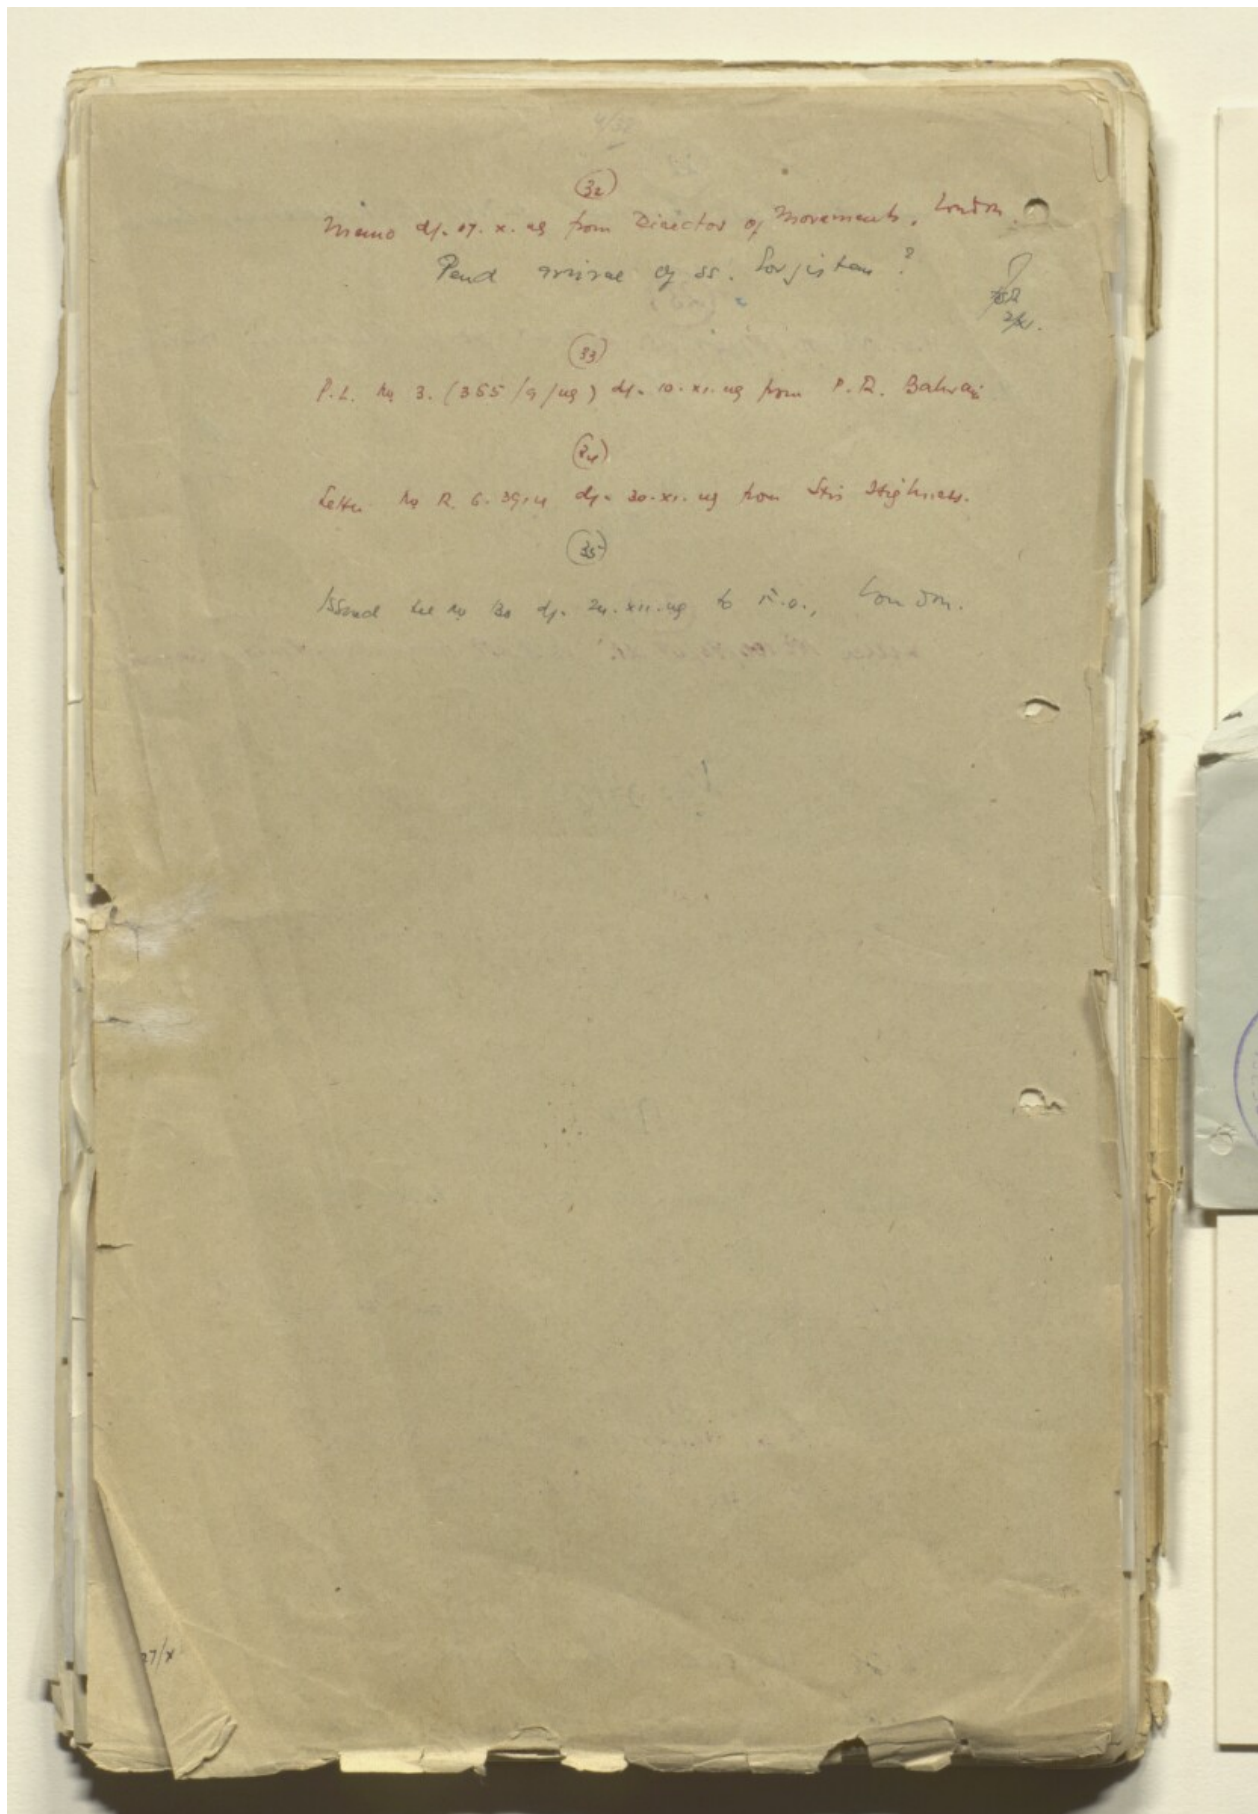 4/37
32
Memo d/- 07.x.49 from Director of Movements, London.
Pend arrival of ss. Lorjistan?
33
P.L. No 3. (355/9/49) d/- 10.xi.49 from P.R. Bahrain
34
Letter No R. 6. d/- 30.xi.49 from His Highness.
35
Issued No 130 d/- 24.xii.49 to F.O., London.
27/x